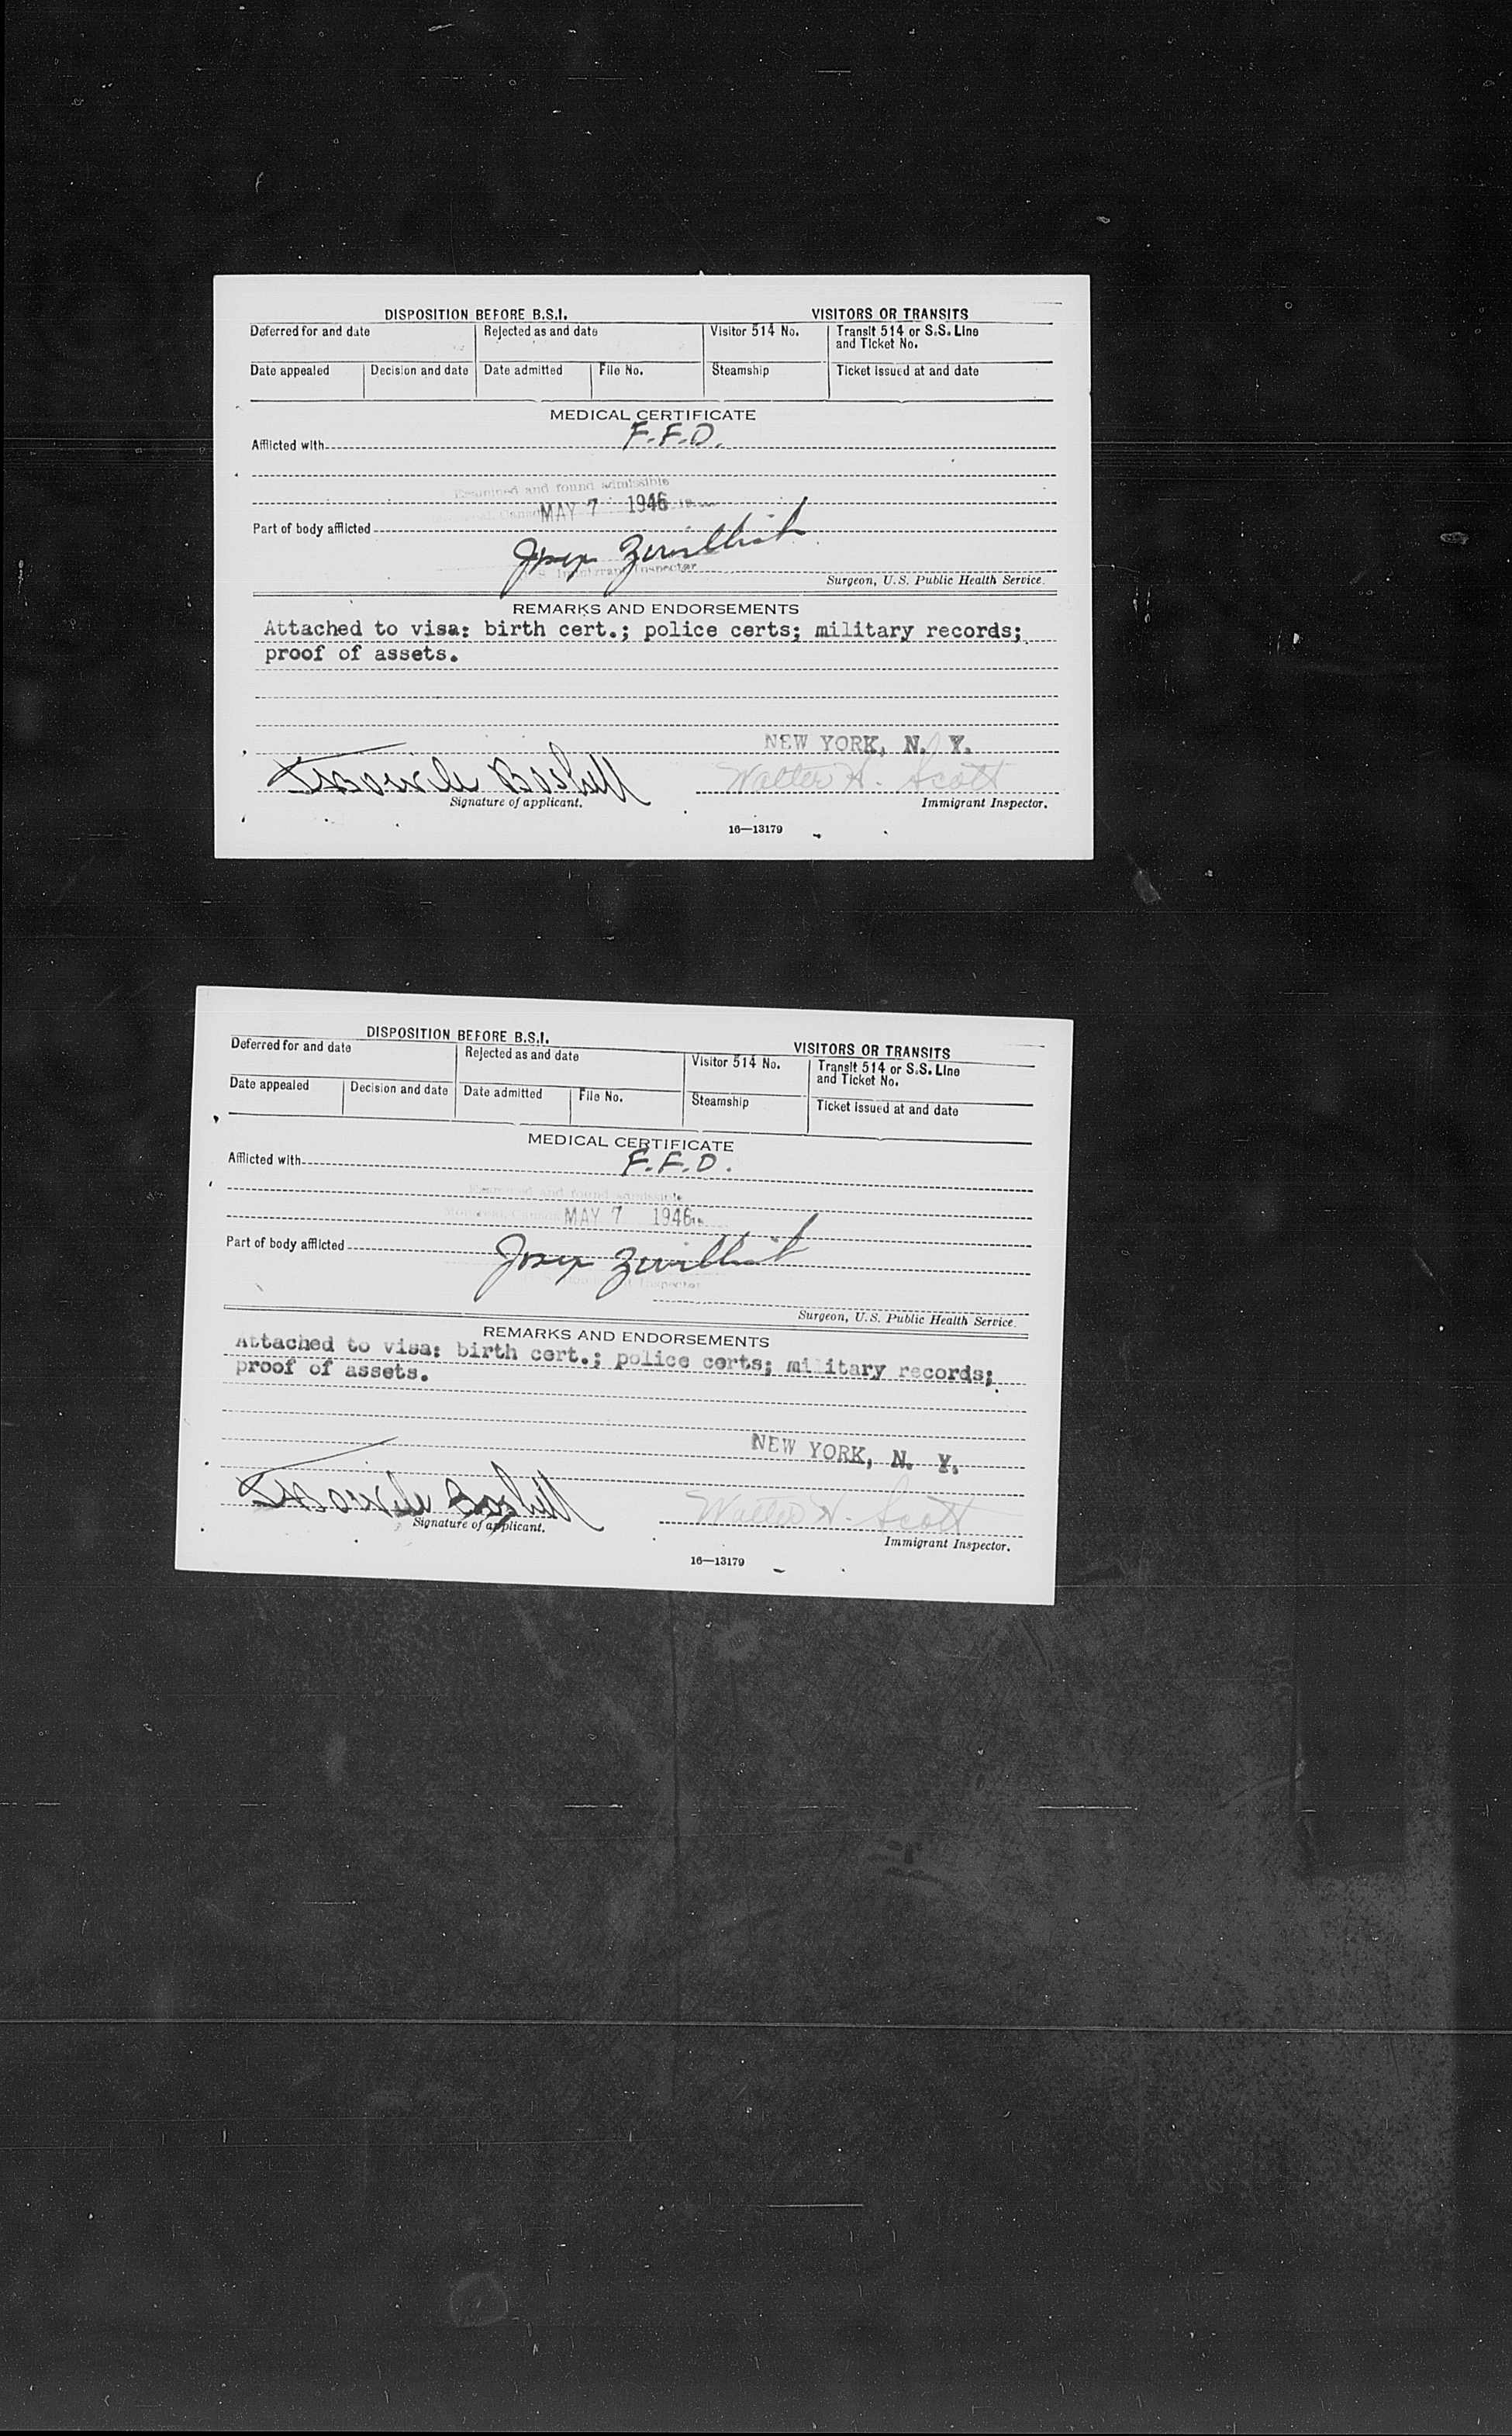 DISPOSITION BEFORE B.S.I. VISITORS OR TRANSITS
Deferred for and date Rejected as and date Visitor 514 No. Transit 514 or S.S. Line
and Ticket No.
Date appealed Decision and date Date admitted File No. Steamship Ticket issued at and date
MEDICAL CERTIFICATE
Afflicted with F.F.D.
Examined and found admissible
MAY 7 1946
Part of body afflicted
Immigrant Inspector
Surgeon, U.S. Public Health Service.
REMARKS AND ENDORSEMENTS
Attached to visa: birth cert.; police certs; military records;
proof of assets.
NEW YORK, N. Y.
Walter H. Scott
Signature of applicant. Immigrant Inspector.
16—13179
DISPOSITION BEFORE B.S.I. VISITORS OR TRANSITS
Deferred for and date Rejected as and date Visitor 514 No. Transit 514 or S.S. Line
and Ticket No.
Date appealed Decision and date Date admitted File No. Steamship Ticket issued at and date
MEDICAL CERTIFICATE
Afflicted with F.F.D.
Examined and found admissible
Montreal, Canada MAY 7 1946
Part of body afflicted
Immigrant Inspector
Surgeon, U.S. Public Health Service.
REMARKS AND ENDORSEMENTS
Attached to visa: birth cert.; police certs; military records;
proof of assets.
NEW YORK, N. Y.
Walter H. Scott
Signature of applicant. Immigrant Inspector.
16—13179